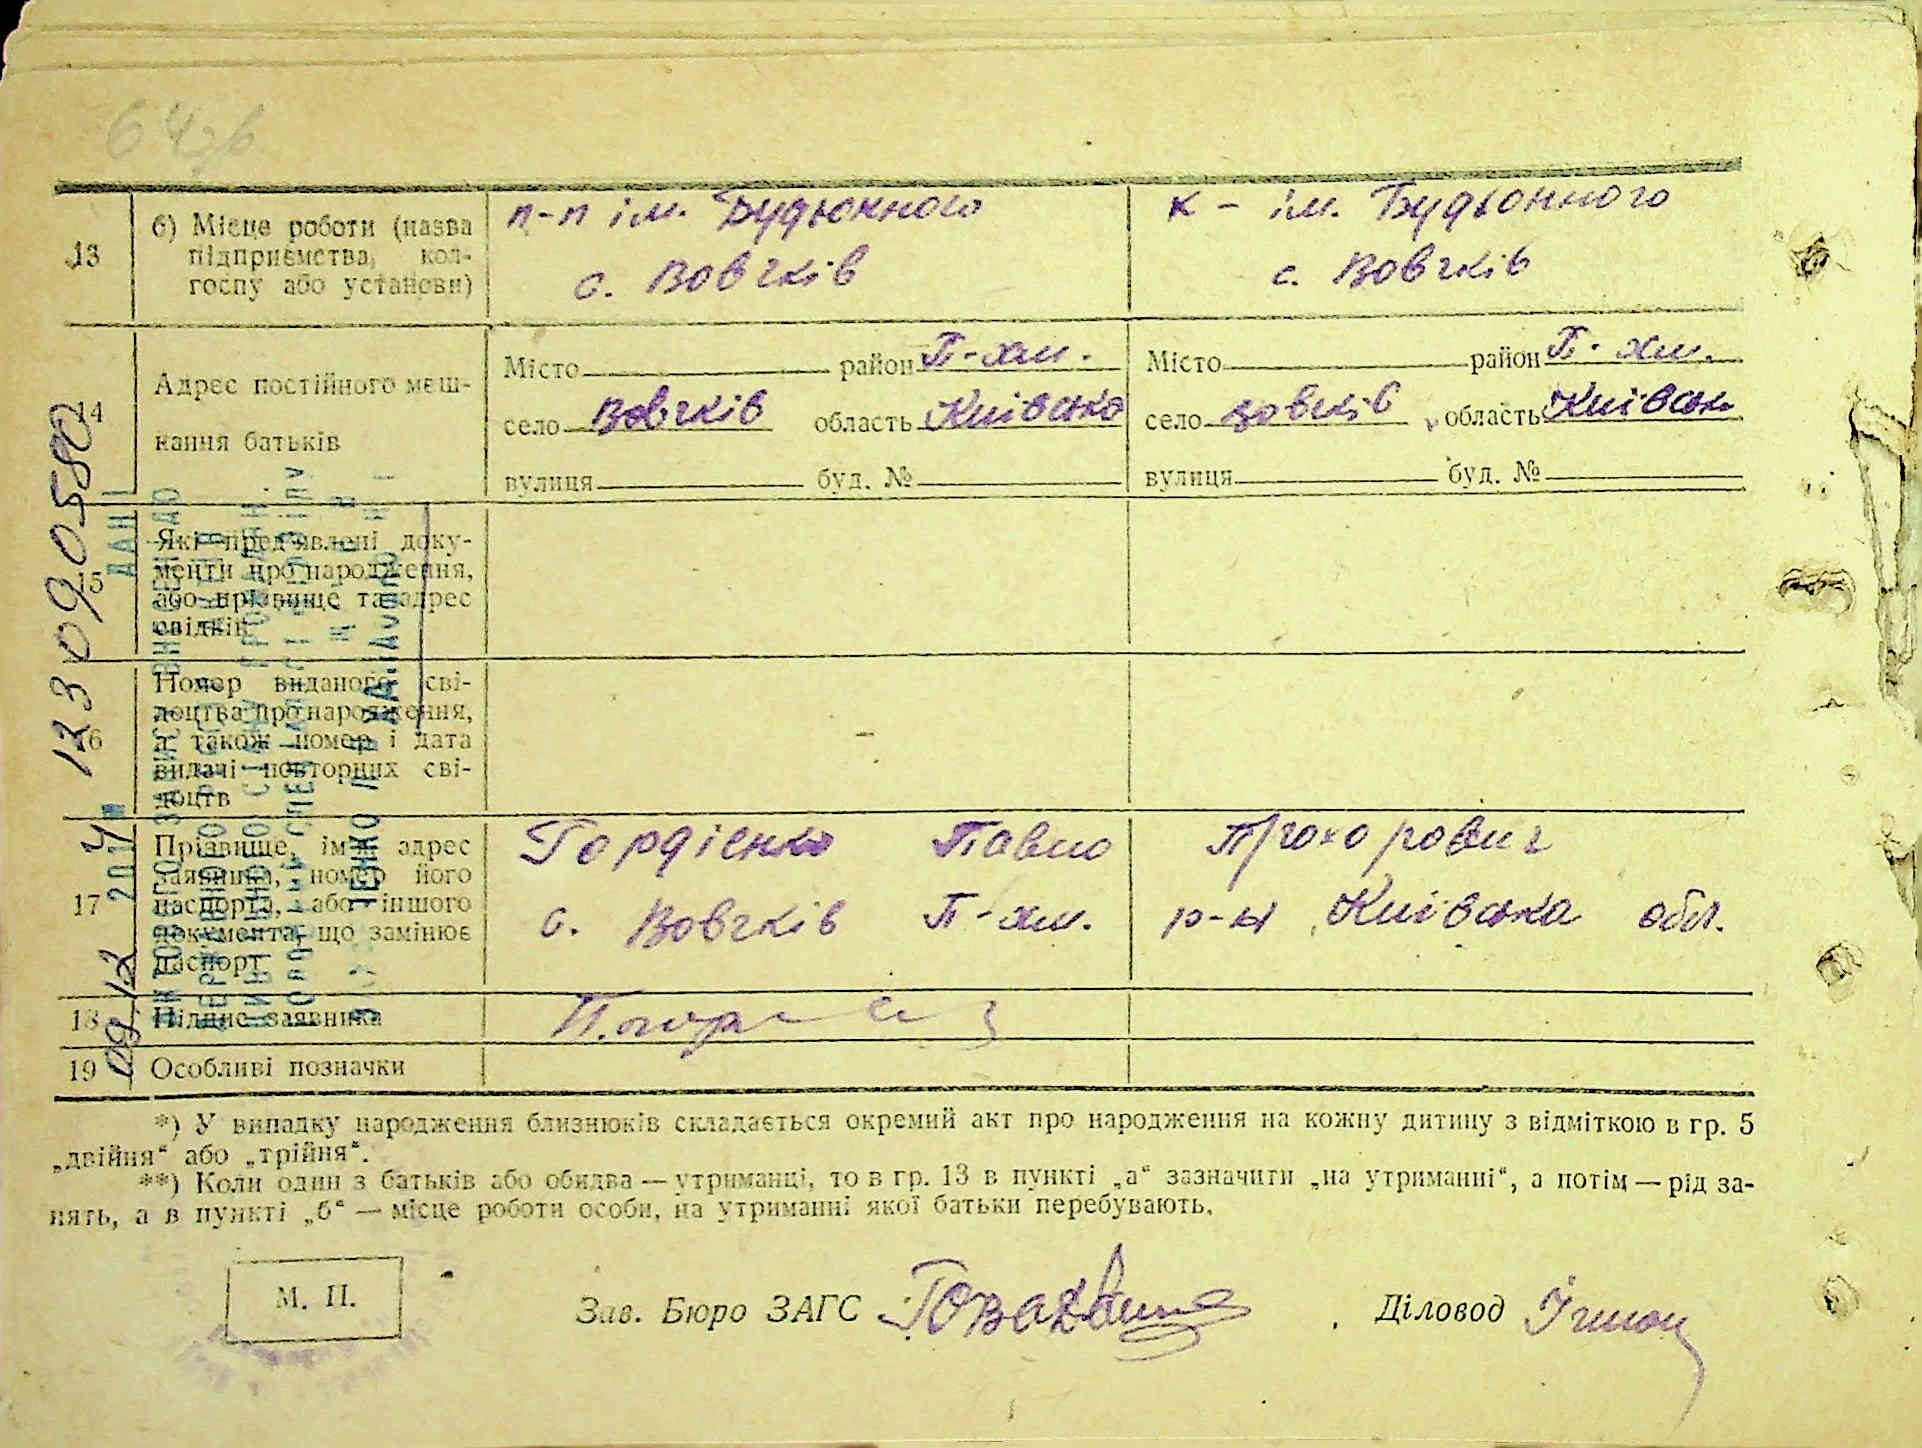 64зв
13
б) Місце роботи (назва
підприємства, кол-
госпу або установи)
п-п ім. Будьонного
с. Вовчків
к - ім. Будьонного
с. Вовчків
14
Адрес постійного меш-
кання батьків
Місто район П-хм.
село Вовчків область Київська
вулиця буд. №
Місто район П-хм.
село Вовчків область Київськ
вулиця буд. №
15
Які пред'явлені доку-
менти про народження,
або прізвище та адрес
свідків
16
Номер виданого сві-
доцтва про народження,
а також номер і дата
видачі повторних сві-
доцтв
17
Прізвище, ім'я, адрес
заявника, номер його
паспорта, або іншого
документа, що замінює
паспорт
Гордієнко Павло Прохорович
с. Вовчків П-хм. р-н Київська обл.
18
Підпис заявника
19
Особливі позначки
09 12 2014
123090580
ДАНІ
*) У випадку народження близнюків складається окремий акт про народження на кожну дитину з відміткою в гр. 5
„двійня“ або „трійня“.
**) Коли один з батьків або обидва — утриманці, то в гр. 13 в пункті „а“ зазначити „на утриманні“, а потім — рід за-
нять, а в пункті „б“ — місце роботи особи, на утриманні якої батьки перебувають.
М. П.
Зав. Бюро ЗАГС
Діловод